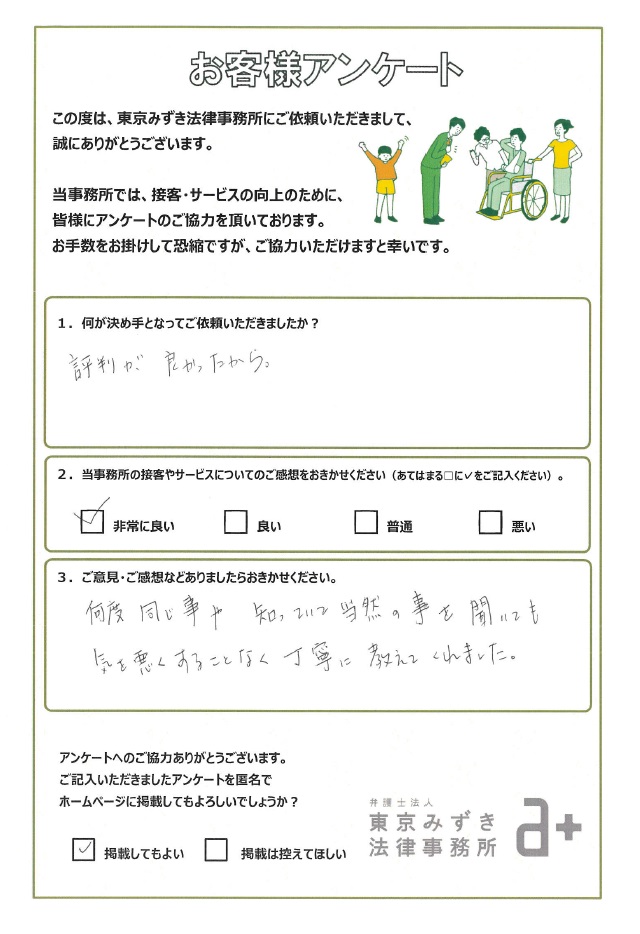 お客様アンケート
この度は、東京みずき法律事務所にご依頼いただきまして、
誠にありがとうございます。
当事務所では、接客・サービスの向上のために、
皆様にアンケートのご協力を頂いております。
お手数をお掛けして恐縮ですが、ご協力いただけますと幸いです。
1．何が決め手となってご依頼いただきましたか？
評判が良かったから。
2．当事務所の接客やサービスについてのご感想をおきかせください（あてはまる□に✓をご記入ください）。
☑ 非常に良い □ 良い □ 普通 □ 悪い
3．ご意見・ご感想などありましたらおきかせください。
何度同じ事や 知っていて当然の事を聞いても
気を悪くすることなく丁寧に教えてくれました。
アンケートへのご協力ありがとうございます。
ご記入いただきましたアンケートを匿名で
ホームページに掲載してもよろしいでしょうか？
☑ 掲載してもよい □ 掲載は控えてほしい
弁護士法人
東京みずき
法律事務所
a+